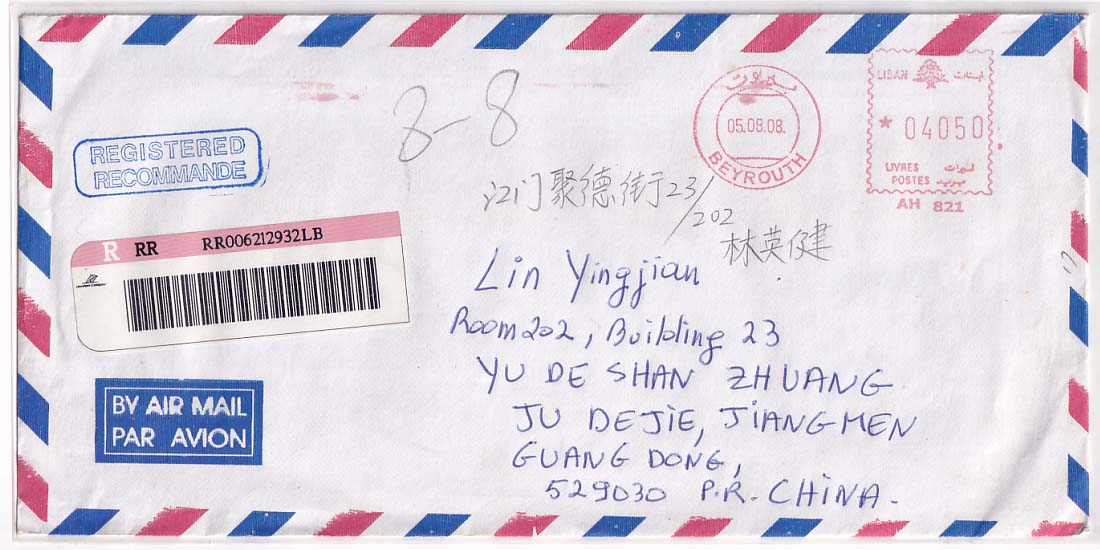 8-8
بيروت
05.09.08.
BEYROUTH
LIBAN لبنان
* 04050
LIVRES ليرات
POSTES بريد
AH 821
REGISTERED
RECOMMANDE
江门聚德街23/202
林英健
R RR RR006212932LB
Lin Yingjian
Room 202, Building 23
YU DE SHAN ZHUANG
JU DEJIE, JIANGMEN
GUANG DONG,
529030 P.R. CHINA.
BY AIR MAIL
PAR AVION